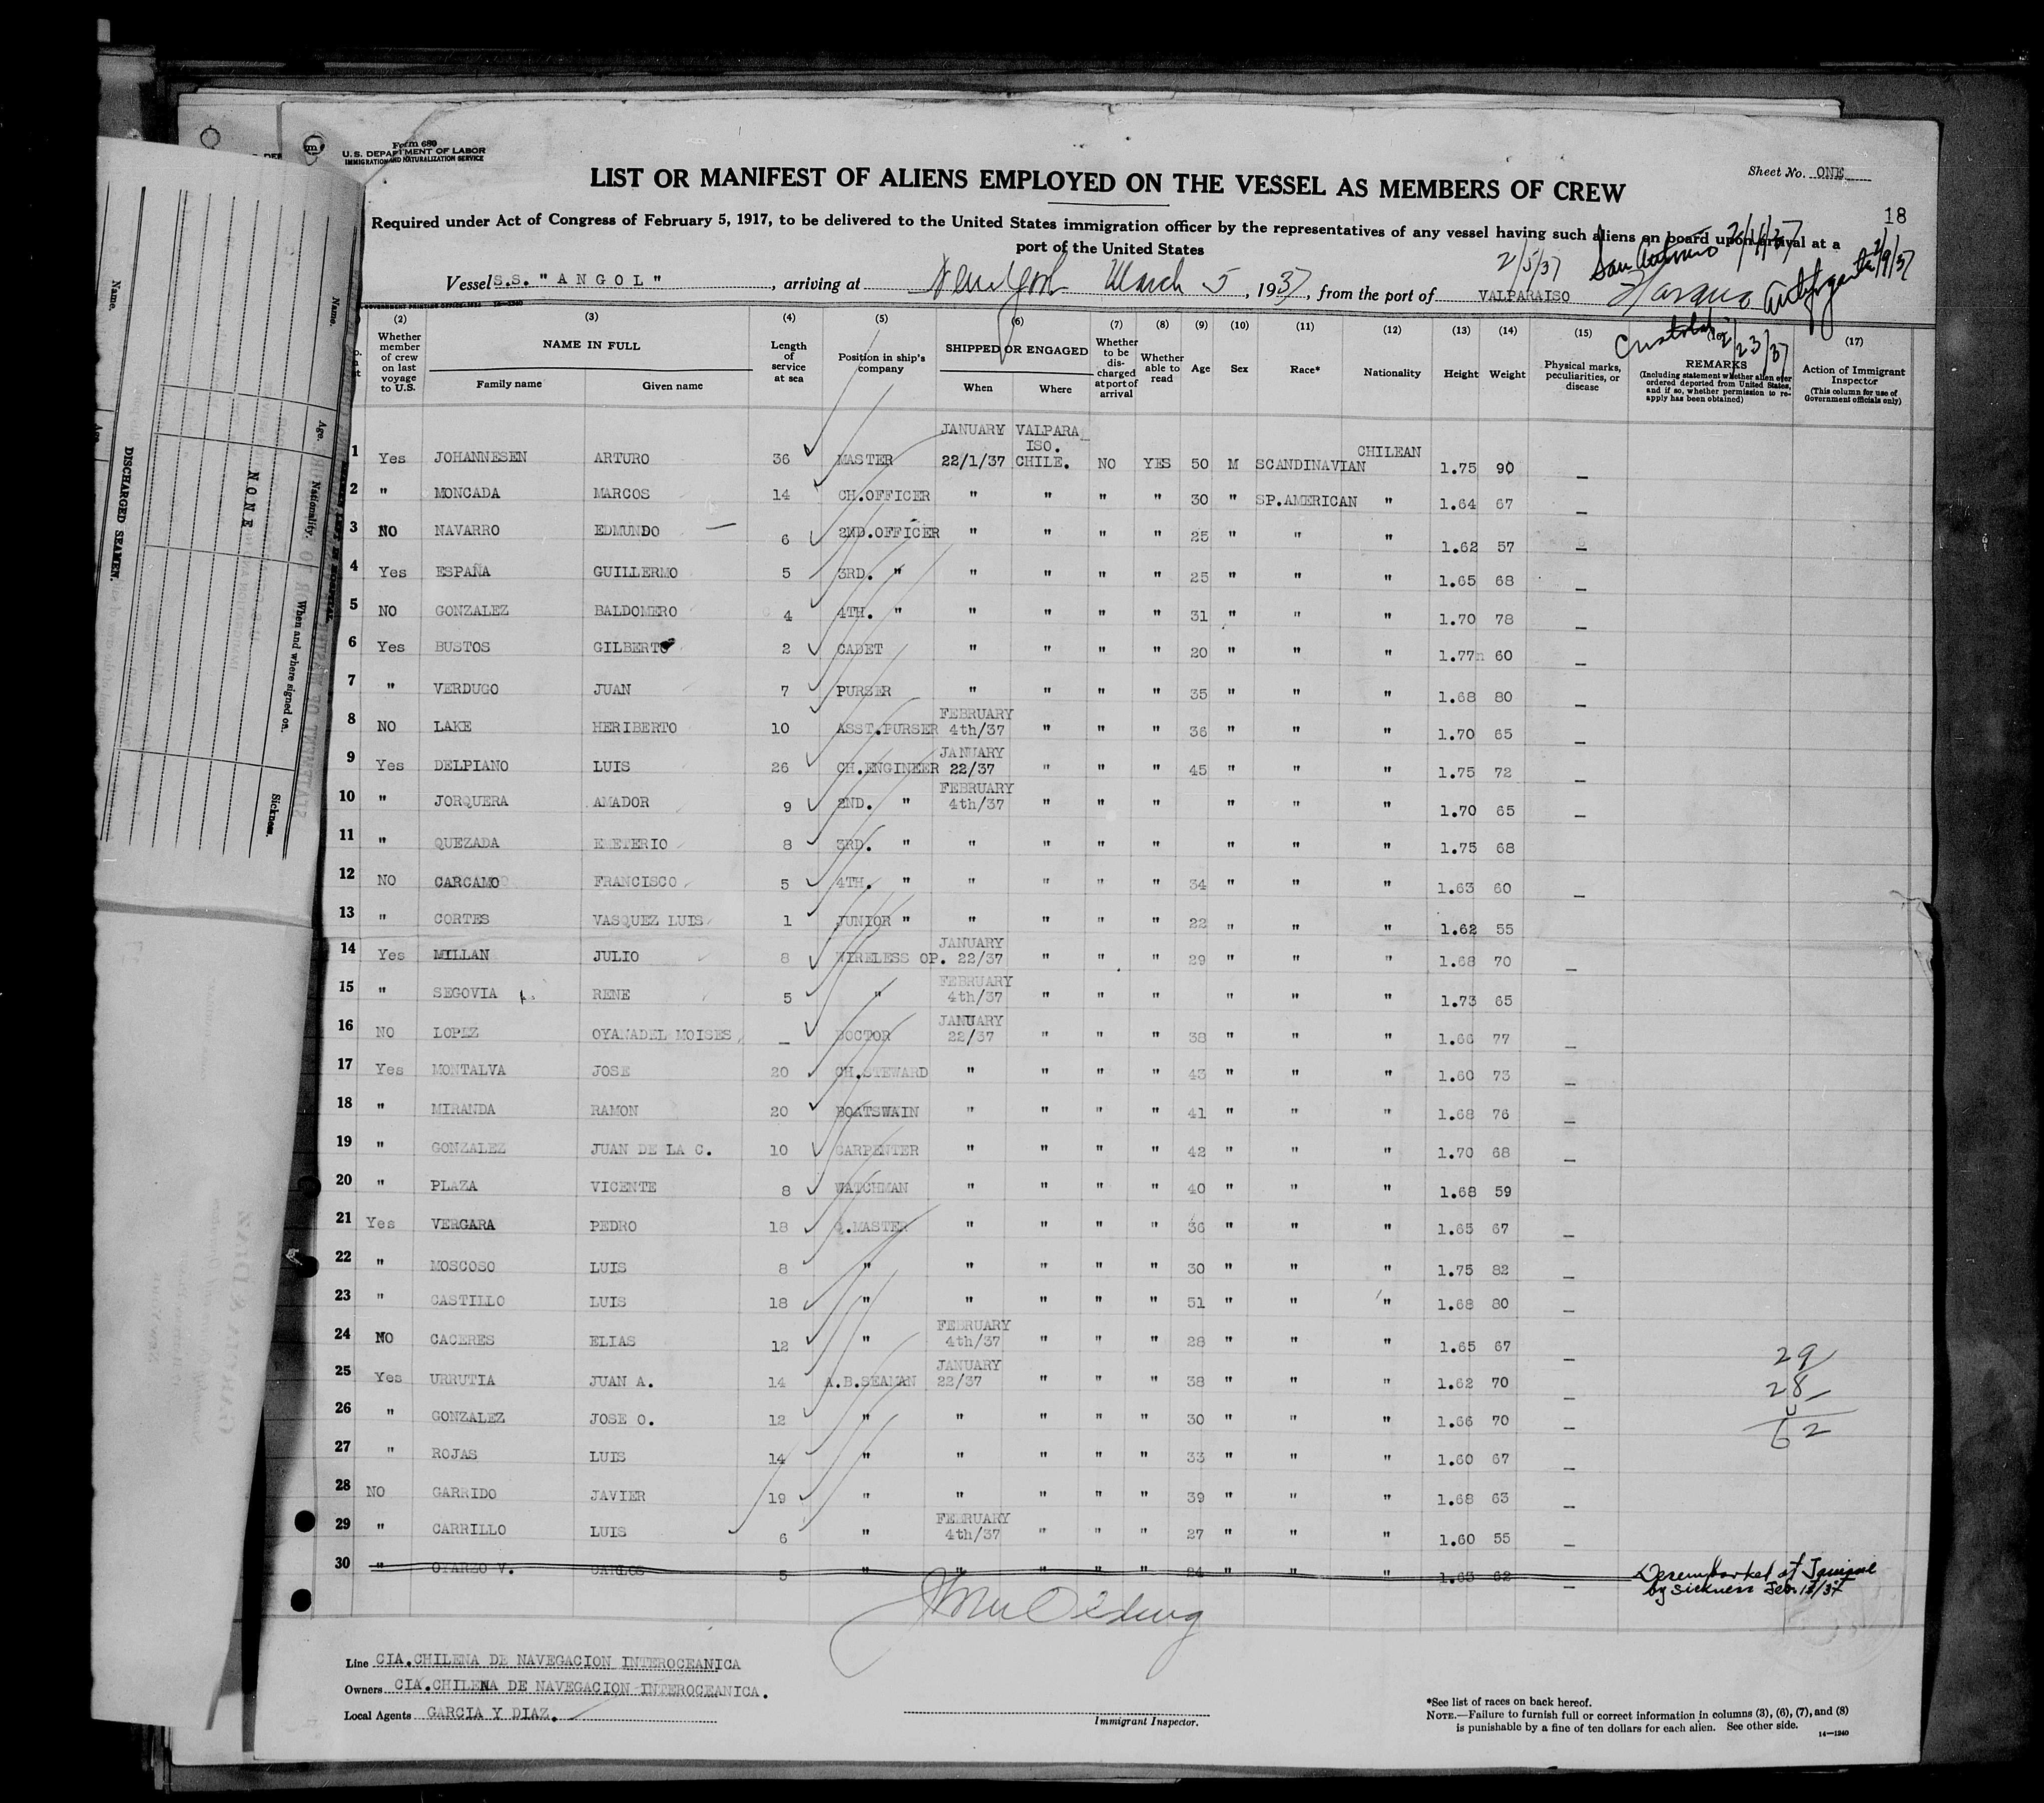 Form 680
U.S. DEPARTMENT OF LABOR
IMMIGRATION AND NATURALIZATION SERVICE
Sheet No. ONE
18
LIST OR MANIFEST OF ALIENS EMPLOYED ON THE VESSEL AS MEMBERS OF CREW
Required under Act of Congress of February 5, 1917, to be delivered to the United States immigration officer by the representatives of any vessel having such aliens on board upon arrival at a
port of the United States
2/5/37 San Antonio
Vessel S.S. "ANGOL", arriving at New York March 5, 1937, from the port of VALPARAISO
2/23/37
(2) Whether member of crew on last voyage to U.S. (3) NAME IN FULL Family name Given name (4) Length of service at sea (5) Position in ship's company (6) SHIPPED OR ENGAGED When Where (7) Whether to be discharged at port of arrival (8) Whether able to read (9) Age (10) Sex (11) Race* (12) Nationality (13) Height (14) Weight (15) Physical marks, peculiarities, or disease REMARKS (Including statement whether alien ever ordered deported from United States, and if so, whether permission to re-apply has been obtained) (17) Action of Immigrant Inspector (This column for use of Government officials only)
1 Yes JOHANNESEN ARTURO 36 MASTER JANUARY 22/1/37 VALPARAISO. CHILE. NO YES 50 M SCANDINAVIAN CHILEAN 1.75 90 _
2 " MONCADA MARCOS 14 CH.OFFICER " " " " 30 " SP.AMERICAN " 1.64 67 _
3 NO NAVARRO EDMUNDO 6 2ND.OFFICER " " " " 25 " " " 1.62 57 _
4 Yes ESPAÑA GUILLERMO 5 3RD. " " " " " 25 " " " 1.65 68 _
5 NO GONZALEZ BALDOMERO 4 4TH. " " " " " 31 " " " 1.70 78 _
6 Yes BUSTOS GILBERTO 2 CADET " " " " 20 " " " 1.77 60 _
7 " VERDUGO JUAN 7 PURSER " " " " 35 " " " 1.68 80 _
8 NO LAKE HERIBERTO 10 ASST.PURSER FEBRUARY 4th/37 " " " 36 " " " 1.70 65 _
9 Yes DELPIANO LUIS 26 CH.ENGINEER JANUARY 22/37 " " " 45 " " " 1.75 72 _
10 " JORQUERA AMADOR 9 2ND. " FEBRUARY 4th/37 " " " " " " 1.70 65 _
11 " QUEZADA EMETERIO 8 3RD. " " " " " " " " 1.75 68
12 NO CARCAMO FRANCISCO 5 4TH. " " " " " 34 " " " 1.63 60 _
13 " CORTES VASQUEZ LUIS 1 JUNIOR " " " " " 22 " " " 1.62 55
14 Yes MILLAN JULIO 8 WIRELESS OP. JANUARY 22/37 " " " 29 " " " 1.68 70 _
15 " SEGOVIA RENE 5 " FEBRUARY 4th/37 " " " " " " 1.73 65 _
16 NO LOPEZ OYANADEL MOISES _ DOCTOR JANUARY 22/37 " " " 38 " " " 1.66 77 _
17 Yes MONTALVA JOSE 20 CH.STEWARD " " " " 43 " " " 1.60 73 _
18 " MIRANDA RAMON 20 BOATSWAIN " " " " 41 " " " 1.68 76 _
19 " GONZALEZ JUAN DE LA C. 10 CARPENTER " " " " 42 " " " 1.70 68 _
20 " PLAZA VICENTE 8 WATCHMAN " " " " 40 " " " 1.68 59
21 Yes VERGARA PEDRO 18 Q.MASTER " " " " 36 " " " 1.65 67 _
22 " MOSCOSO LUIS 8 " " " " " 30 " " " 1.75 82 _
23 " CASTILLO LUIS 18 " " " " " 51 " " " 1.68 80 _
24 NO CACERES ELIAS 12 " FEBRUARY 4th/37 " " " 28 " " " 1.65 67 _
25 Yes URRUTIA JUAN A. 14 A.B.SEAMAN JANUARY 22/37 " " " 38 " " " 1.62 70 _
26 " GONZALEZ JOSE O. 12 " " " " " 30 " " " 1.66 70 _
27 " ROJAS LUIS 14 " " " " " 33 " " " 1.60 67 _
28 NO GARRIDO JAVIER 19 " " " " " 39 " " " 1.68 63 _
29 " CARRILLO LUIS 6 " FEBRUARY 4th/37 " " " 27 " " " 1.60 55 _
30 " OYARZO V. CARLOS 5 " " " " " 24 " " " 1.63 62 _ Desembarked at
by sickness Feb 12/37
29
28
62
Line CIA.CHILENA DE NAVEGACION INTEROCEANICA
Owners CIA.CHILENA DE NAVEGACION INTEROCEANICA.
Local Agents GARCIA Y DIAZ.
Immigrant Inspector.
*See list of races on back hereof.
NOTE.—Failure to furnish full or correct information in columns (3), (6), (7), and (8)
is punishable by a fine of ten dollars for each alien. See other side.
14—1240
DISCHARGED SEAMEN.
Name.
Age.
Nationality.
When and where signed on.
Sickness.
NONE
Name.
GARCIA & DIAZ